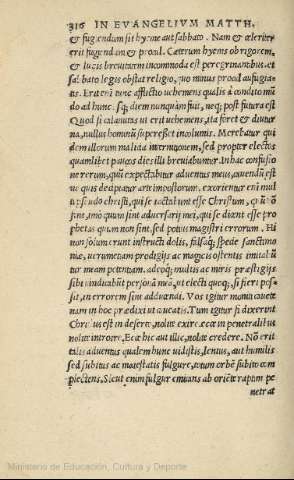 316 IN EVANGELIVM MATTH.
& fugiendum sit hyeme aut sabbato. Nam & celeriter
erit fugiendum & procul. Cæterum hyems ob rigorem,
& lucis breuitatem incommoda est peregrinantibus, et
sabbato legis obstat religio, quo minus procul aufugia-
tis. Erit enim tunc afflictio uehemens qualis à condito mū
do ad hunc usq; diem nunquàm fuit, neq; post futura est
Quod si calamitas ut erit uehemens, ita foret & diutur
na, nullus hominū superesset incolumis. Merebatur qui
dem illorum malitia internitionem, sed propter electos
quamlibet paucos dies illi breuiabuntur. In hac confusio
ne rerum, quū expectabitur aduentus meus, cauendū est
ne quis decipiatur arte impostorum. exorientur enī mul
ti pseudochristi, qui se iactabunt esse Christum, quū nō
sint, imò quum sint aduersarij mei, qui se dicant esse pro
phetas quum non sint, sed potius magistri errorum. Hi
non solum erunt instructi dolis, falsaq; specie sanctimo
niæ, uerumetiam prodigijs ac magicis ostentis imitabū
tur meam potentiam. adeoq; multis ac miris præstigijs
sibi uindicabūt personā meā, ut electi quoq;, si fieri pos-
sit, in errorem sint adducendi. Vos igitur moniti cauete
nam in hoc prædixi ut caueatis. Tum igitur si dixerint
Christus est in deserto, nolite exire. ecce in penetralibus
nolite introire, Ecce hic aut illic, nolite credere. Nō erit
talis aduentus qualem hunc uidistis, lentus, aut humilis
sed subitus ac maiestatis fulgore, totum orbē subito com
plectens, Sicut enim fulgur emicans ab oriēte raptim pe
netrat
Ministerio de Educación, Cultura y Deporte